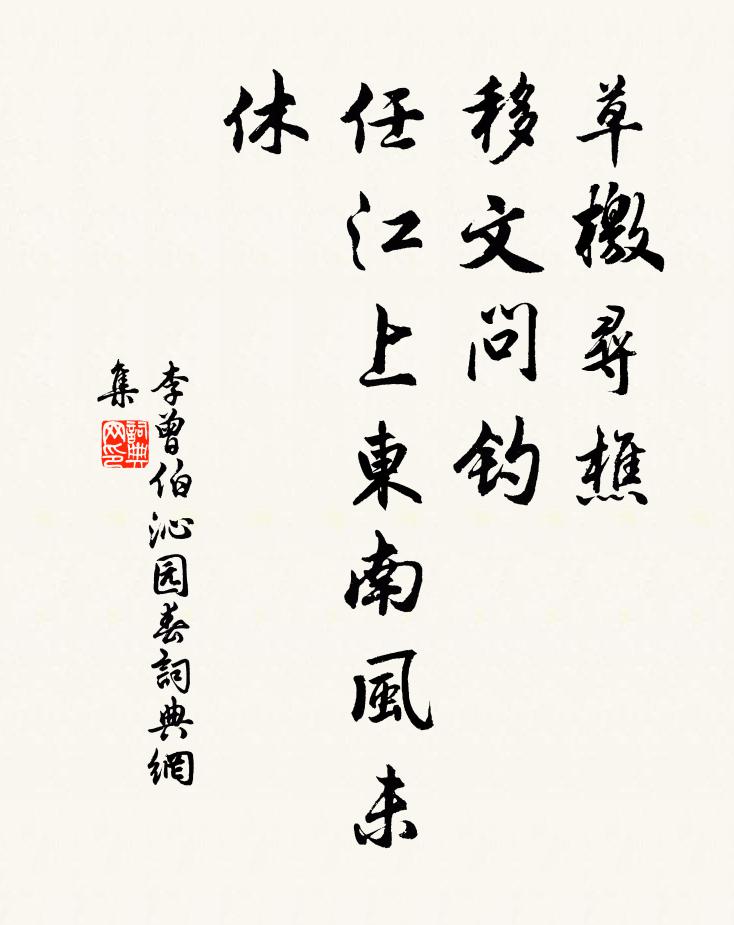 草檄尋樵
移文問釣
任江上東南風未
休
李曾伯沁园春詞典網
集
詞典
网印